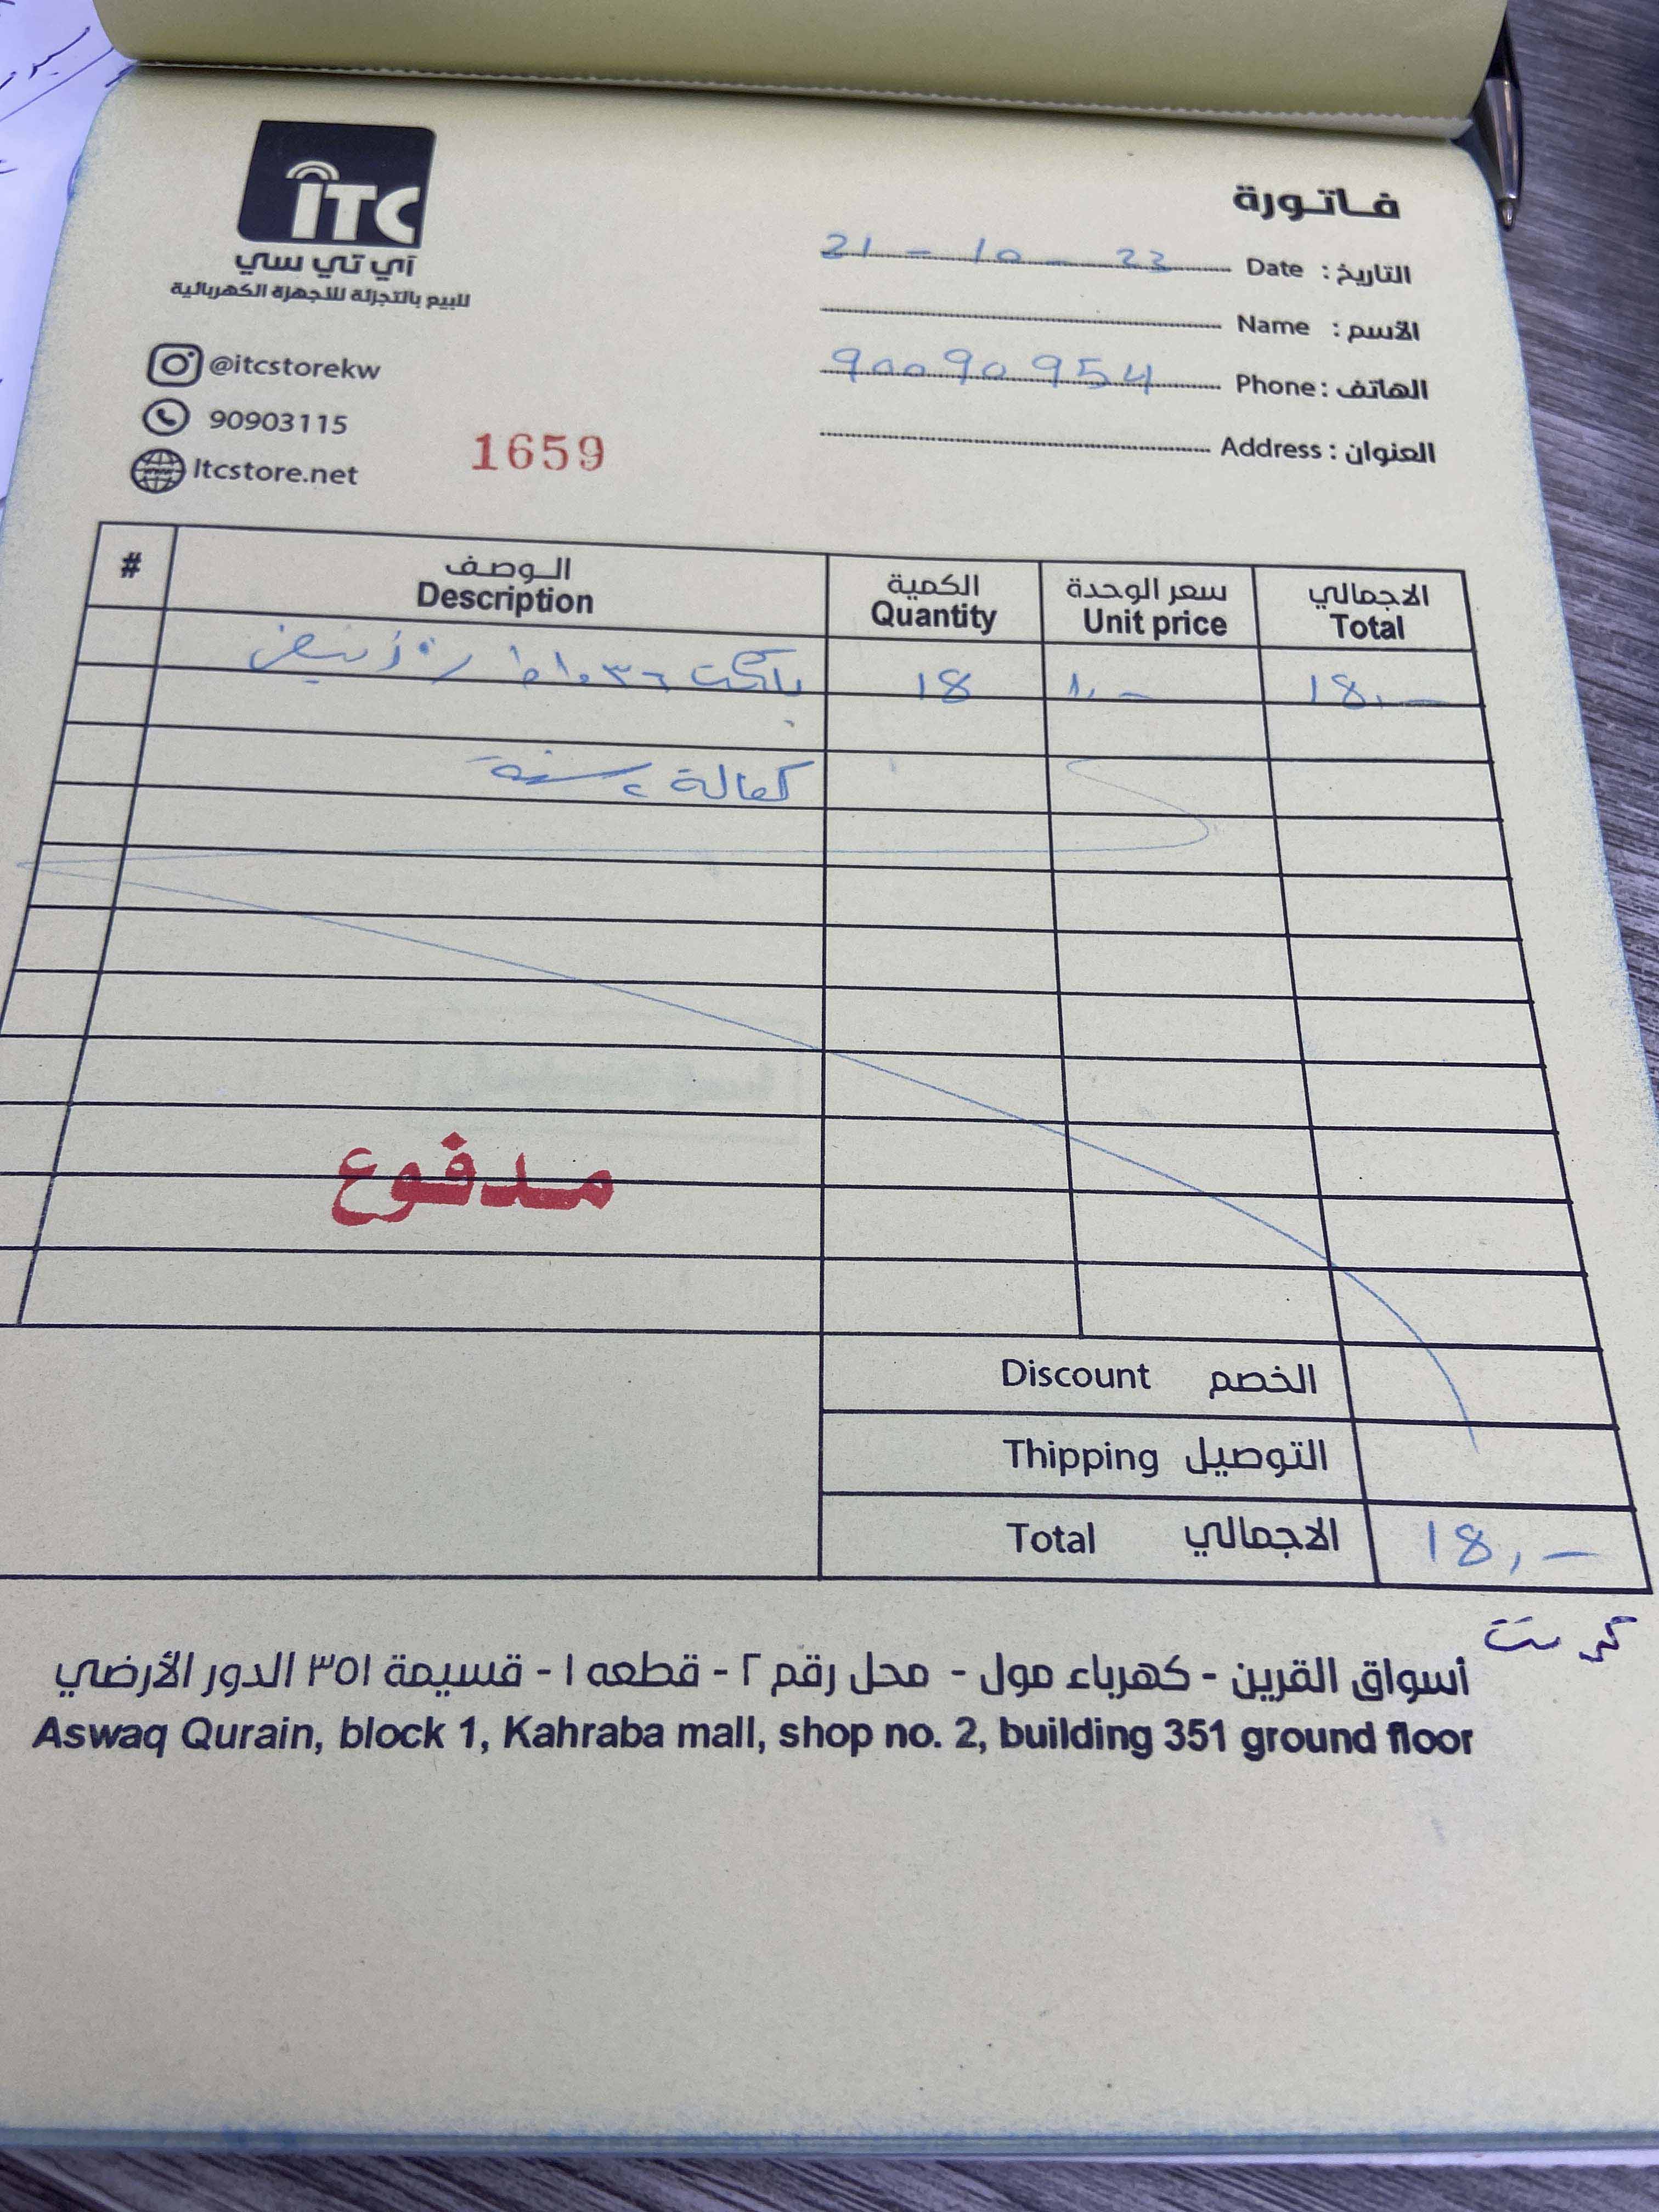 ITC
آي تي سي
للبيع بالتجزئة للأجهزة الكهربائية
@itcstorekw
90903115
Itcstore.net
1659
فاتورة
التاريخ : Date 21 - 10 - 23
الأسم : Name
الهاتف : Phone 90090954
العنوان : Address
# الوصف الكمية سعر الوحدة الاجمالي
Description Quantity Unit price Total
٣٦ واط أبيض 18 ١,- 18,-
كفالة ٢ سنة
مدفوع
Discount الخصم
Thipping التوصيل
Total الاجمالي 18,-
أسواق القرين - كهرباء مول - محل رقم ٢ - قطعه ١ - قسيمة ٣٥١ الدور الأرضي
Aswaq Qurain, block 1, Kahraba mall, shop no. 2, building 351 ground floor